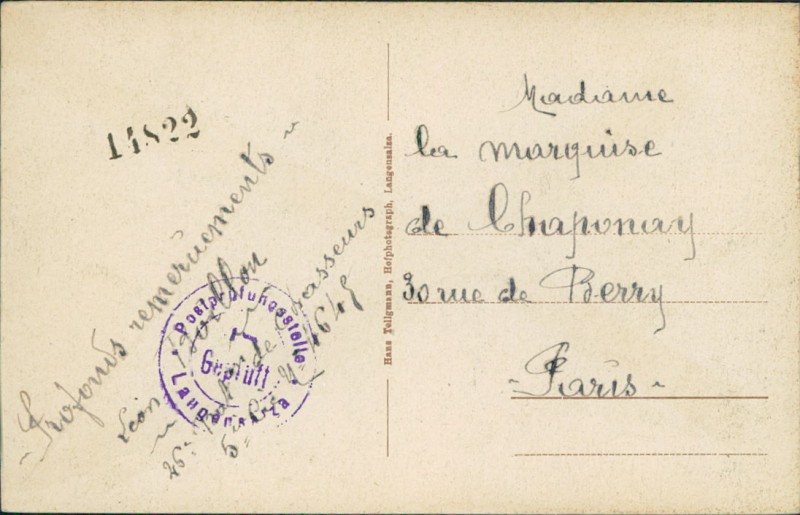 14822
- Profonds remerciements -
Léon
26e de Chasseurs
5e Cie
Postprüfungsstelle
Geprüft
Langensalza
Hans Tellgmann, Hofphotograph, Langensalza.
Madame
la marquise
de Chaponay
30 rue de Berry
- Paris -